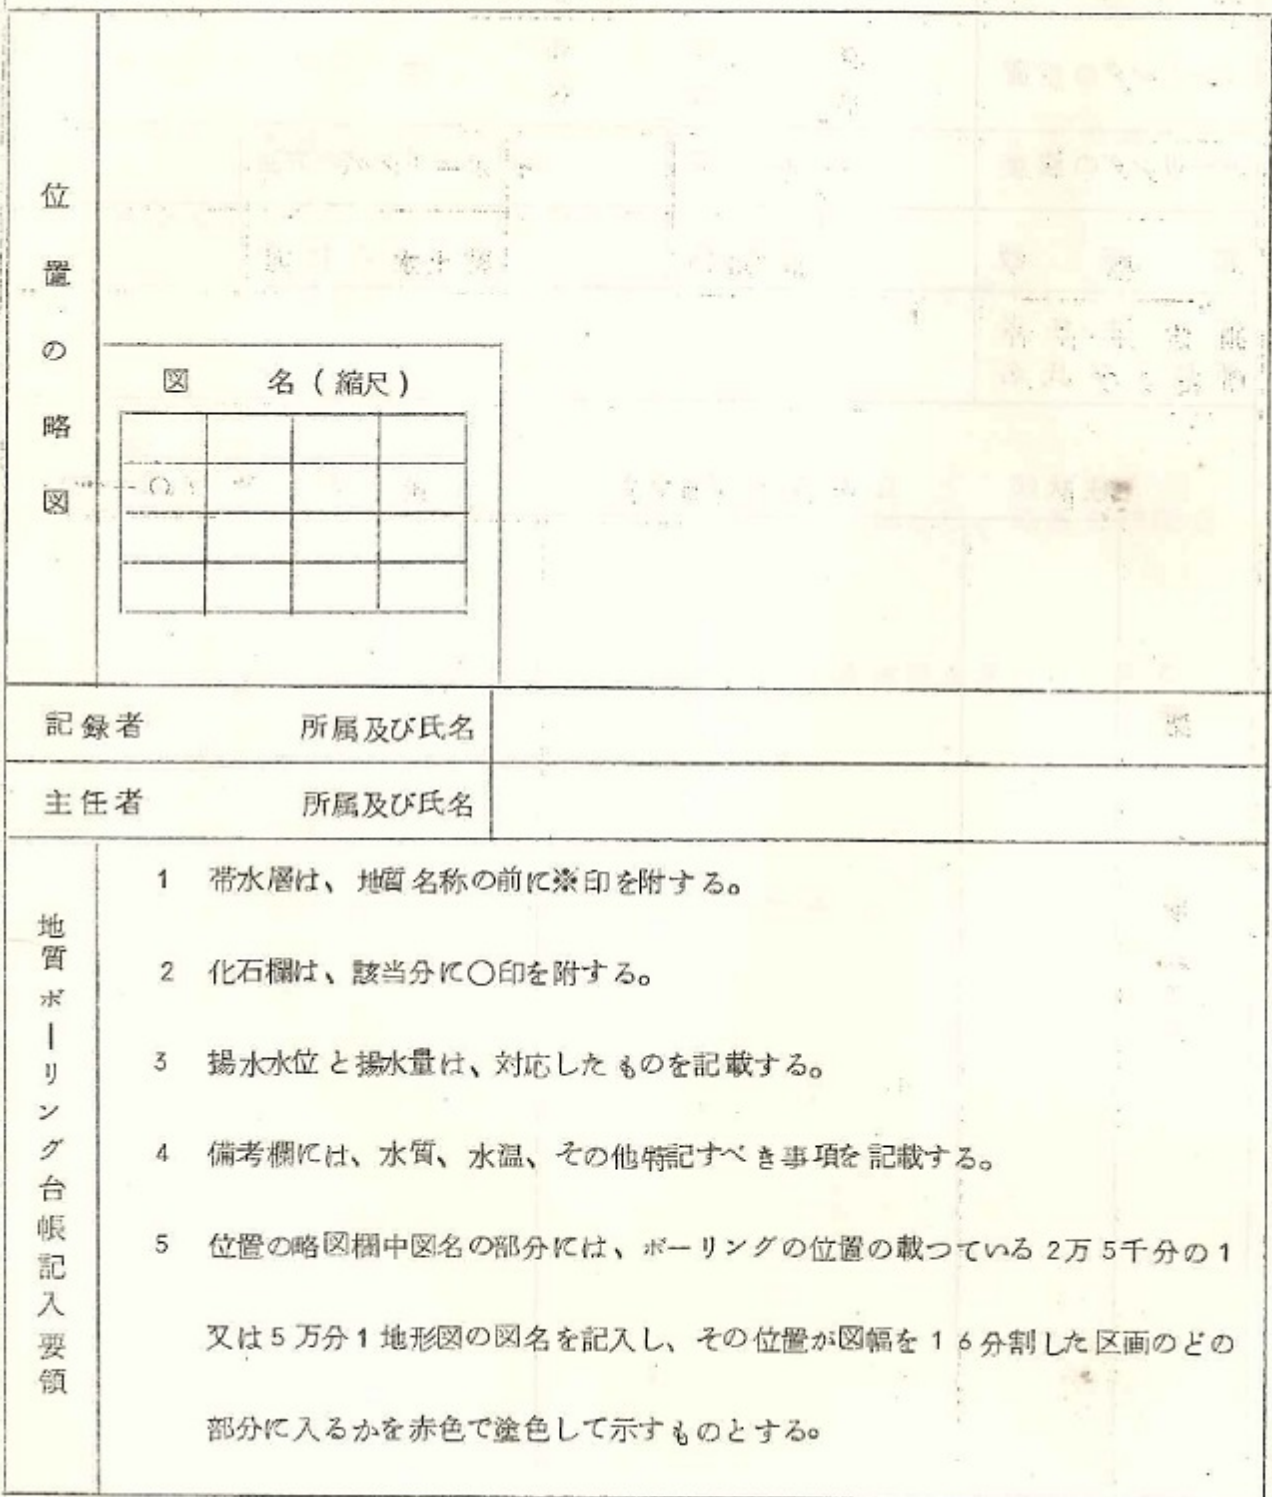 位置の略図
図 名(縮尺)
記録者 所属及び氏名
主任者 所属及び氏名
地質ボーリング台帳記入要領
1 帯水層は、地質名称の前に※印を附する。
2 化石欄は、該当分に○印を附する。
3 揚水水位と揚水量は、対応したものを記載する。
4 備考欄には、水質、水温、その他特記すべき事項を記載する。
5 位置の略図欄中図名の部分には、ボーリングの位置の載つている2万5千分の1
又は5万分1地形図の図名を記入し、その位置が図幅を16分割した区画のどの
部分に入るかを赤色で塗色して示すものとする。